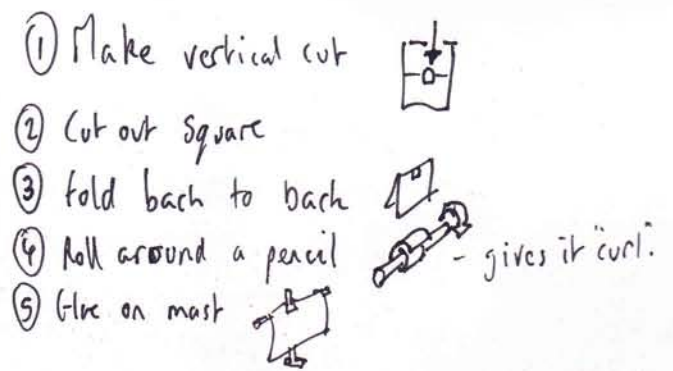 ① Make vertical cut
② Cut out square
③ fold back to back
④ Roll around a pencil - gives it "curl".
⑤ Glue on mast